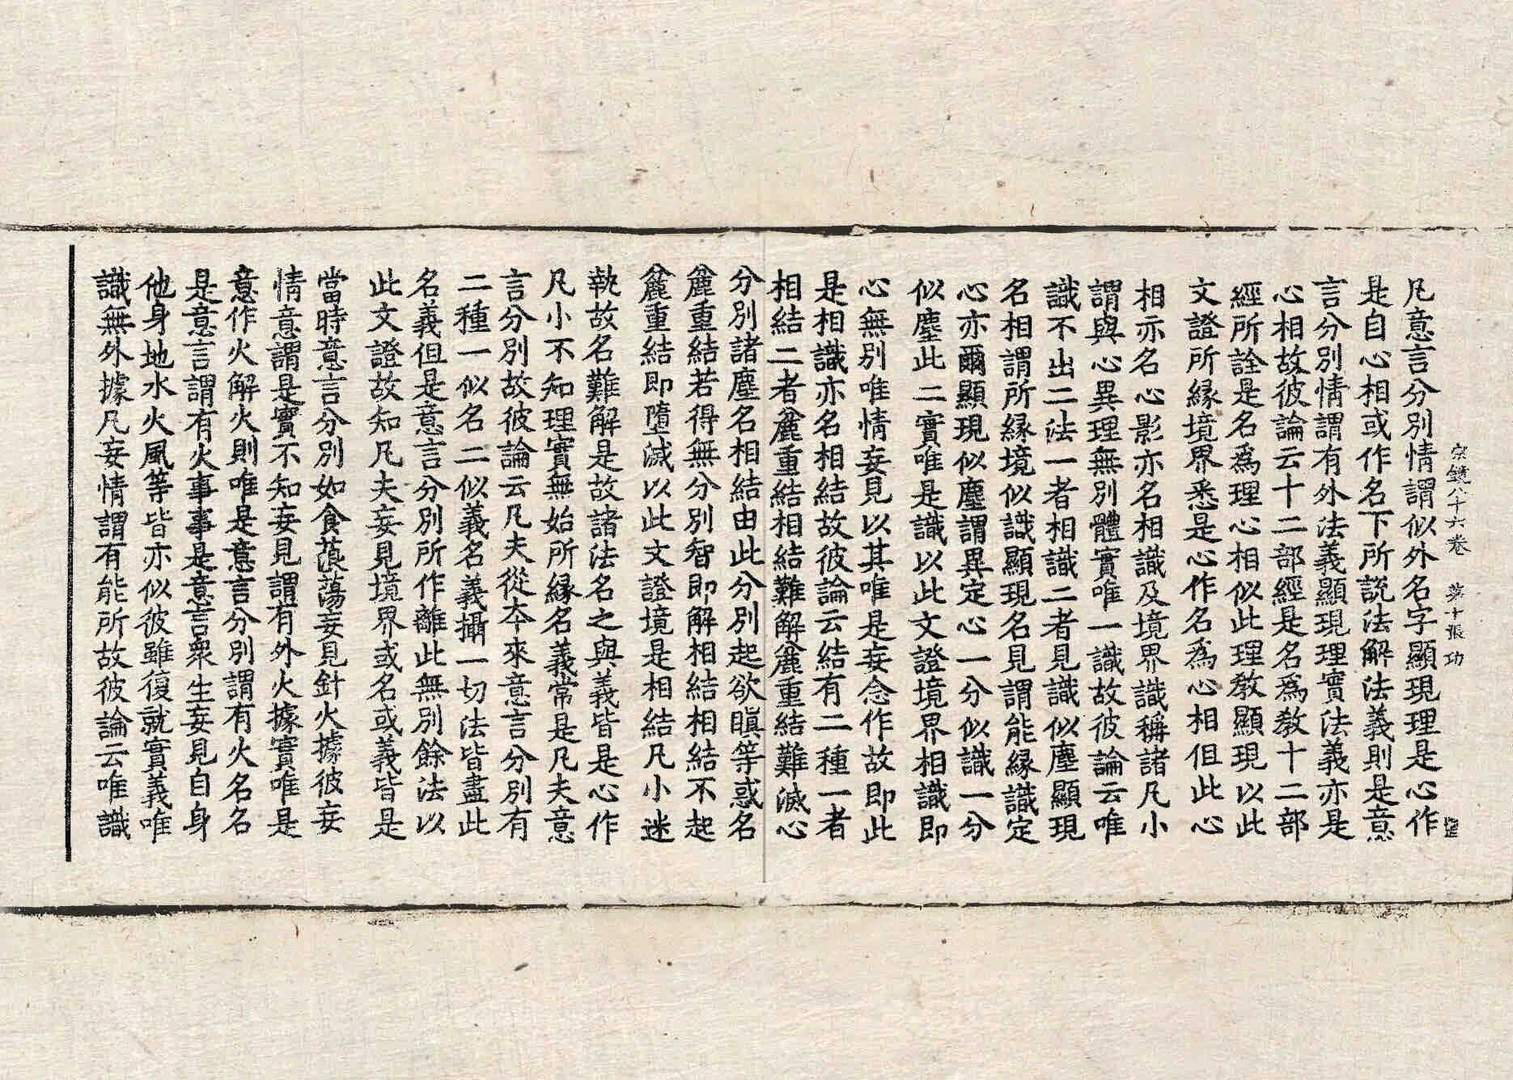 宗鏡八十六卷 第十張 功
凡意言分別情謂似外名字顯現理是心作
是自心相或作名下所說法解法義則是意
言分別情謂有外法義顯現理實法義亦是
心相故彼論云十二部經是名爲教十二部
經所詮是名爲理心相似此理教顯現以此
文證所緣境界悉是心作名爲心相但此心
相亦名心影亦名相識及境界識稱諸凡小
謂與心異理無別體實唯一識故彼論云唯
識不出二法一者相識二者見識似塵顯現
名相謂所緣境似識顯現名見謂能緣識定
心亦爾顯現似塵謂異定心一分似識一分
似塵此二實唯是識以此文證境界相識即
心無別唯情妄見以其唯是妄念作故即此
是相識亦名相結故彼論云結有二種一者
相結二者麁重結相結難解麁重結難滅心
分別諸塵名相結由此分別起欲瞋等惑名
麁重結若得無分別智即解相結相結不起
麁重結即墮滅以此文證境是相結凡小迷
執故名難解是故諸法名之與義皆是心作
凡小不知理實無始所緣名義常是凡夫意
言分別故彼論云凡夫從夲來意言分別有
二種一似名二似義名義攝一切法皆盡此
名義但是意言分別所作離此無別餘法以
此文證故知凡夫妄見境界或名或義皆是
當時意言分別如食蒗蕩妄見針火據彼妄
情意謂是實不知妄見謂有外火據實唯是
意作火解火則唯是意言分別謂有火名名
是意言謂有火事事是意言衆生妄見自身
他身地水火風等皆亦似彼雖復就實義唯
識無外據凡妄情謂有能所故彼論云唯識